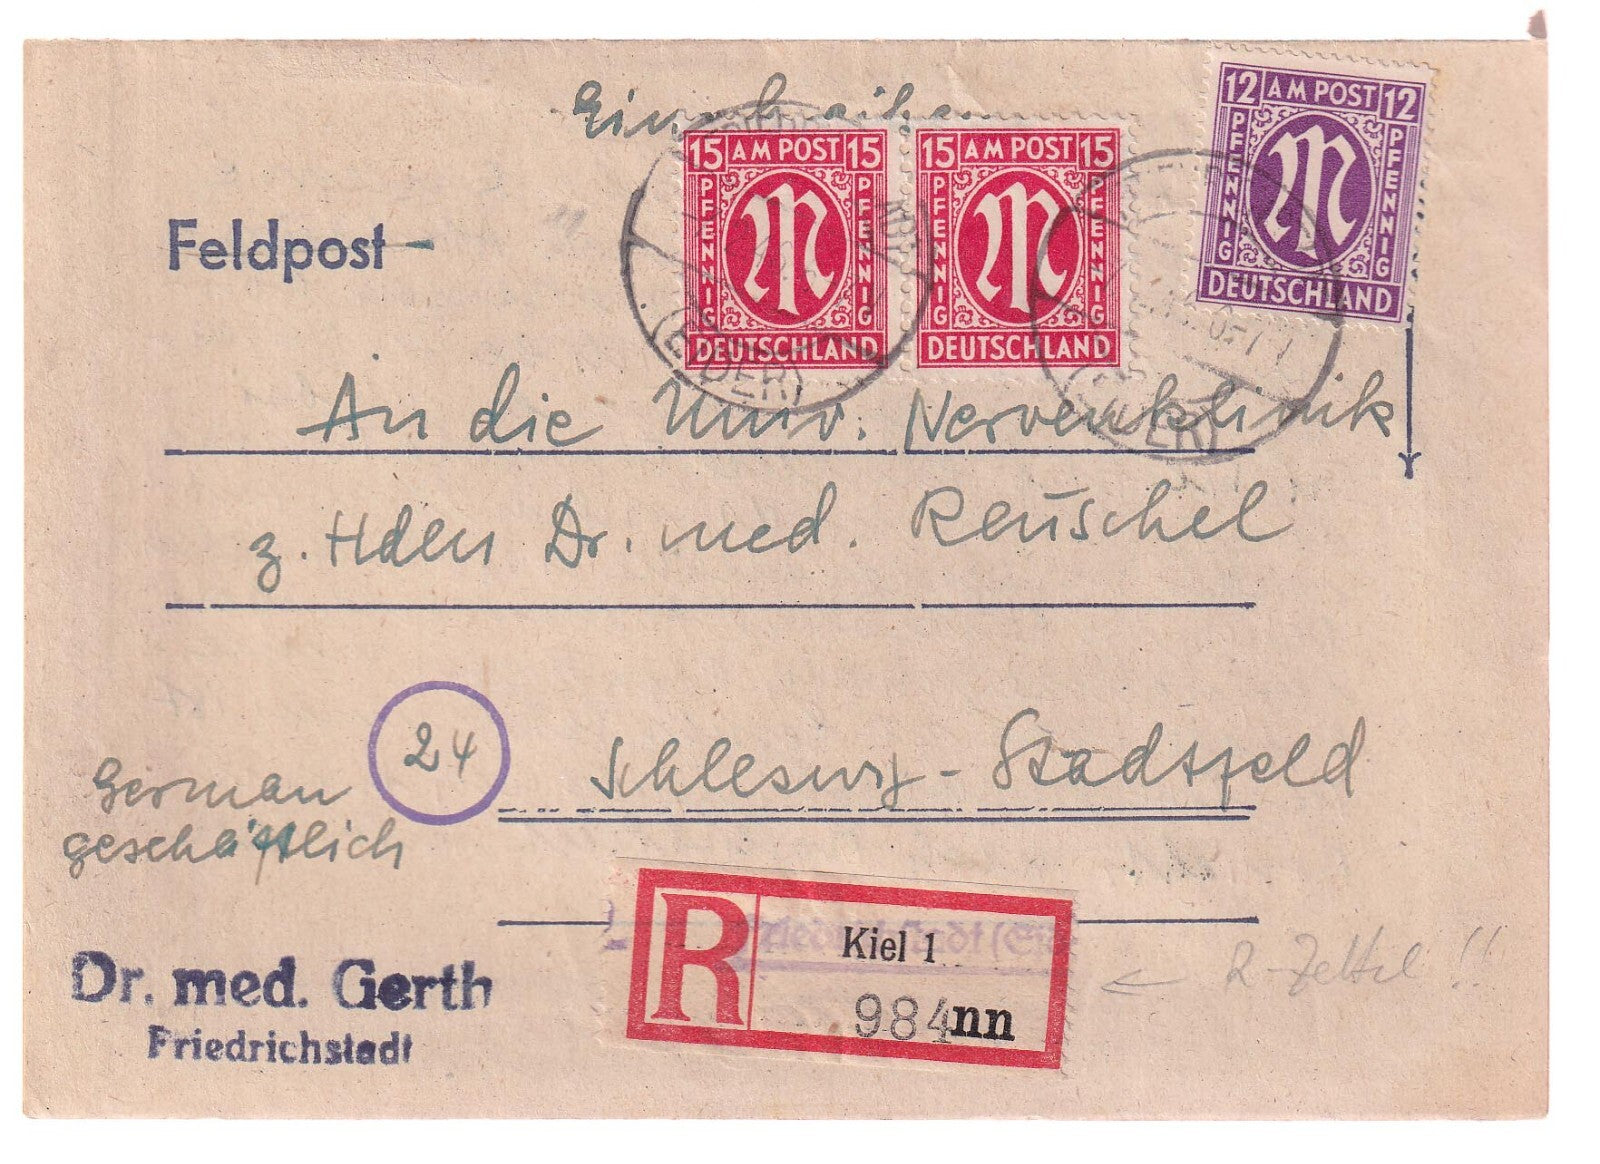 Einschreiben
15 AM POST 15
PFENNIG
PFENNIG
DEUTSCHLAND
15 AM POST 15
PFENNIG
PFENNIG
DEUTSCHLAND
12 AM POST 12
PFENNIG
PFENNIG
DEUTSCHLAND
(EIDER)
(EIDER)
Feldpost -
An die Univ. Nervenklinik
z. Hden Dr. med. Reuschel
24
Schleswig - Stadtfeld
German
geschäftlich
R
Friedrichstadt (Eider
Kiel 1
984nn
R-Zettel !!
Dr. med. Gerth
Friedrichstadt